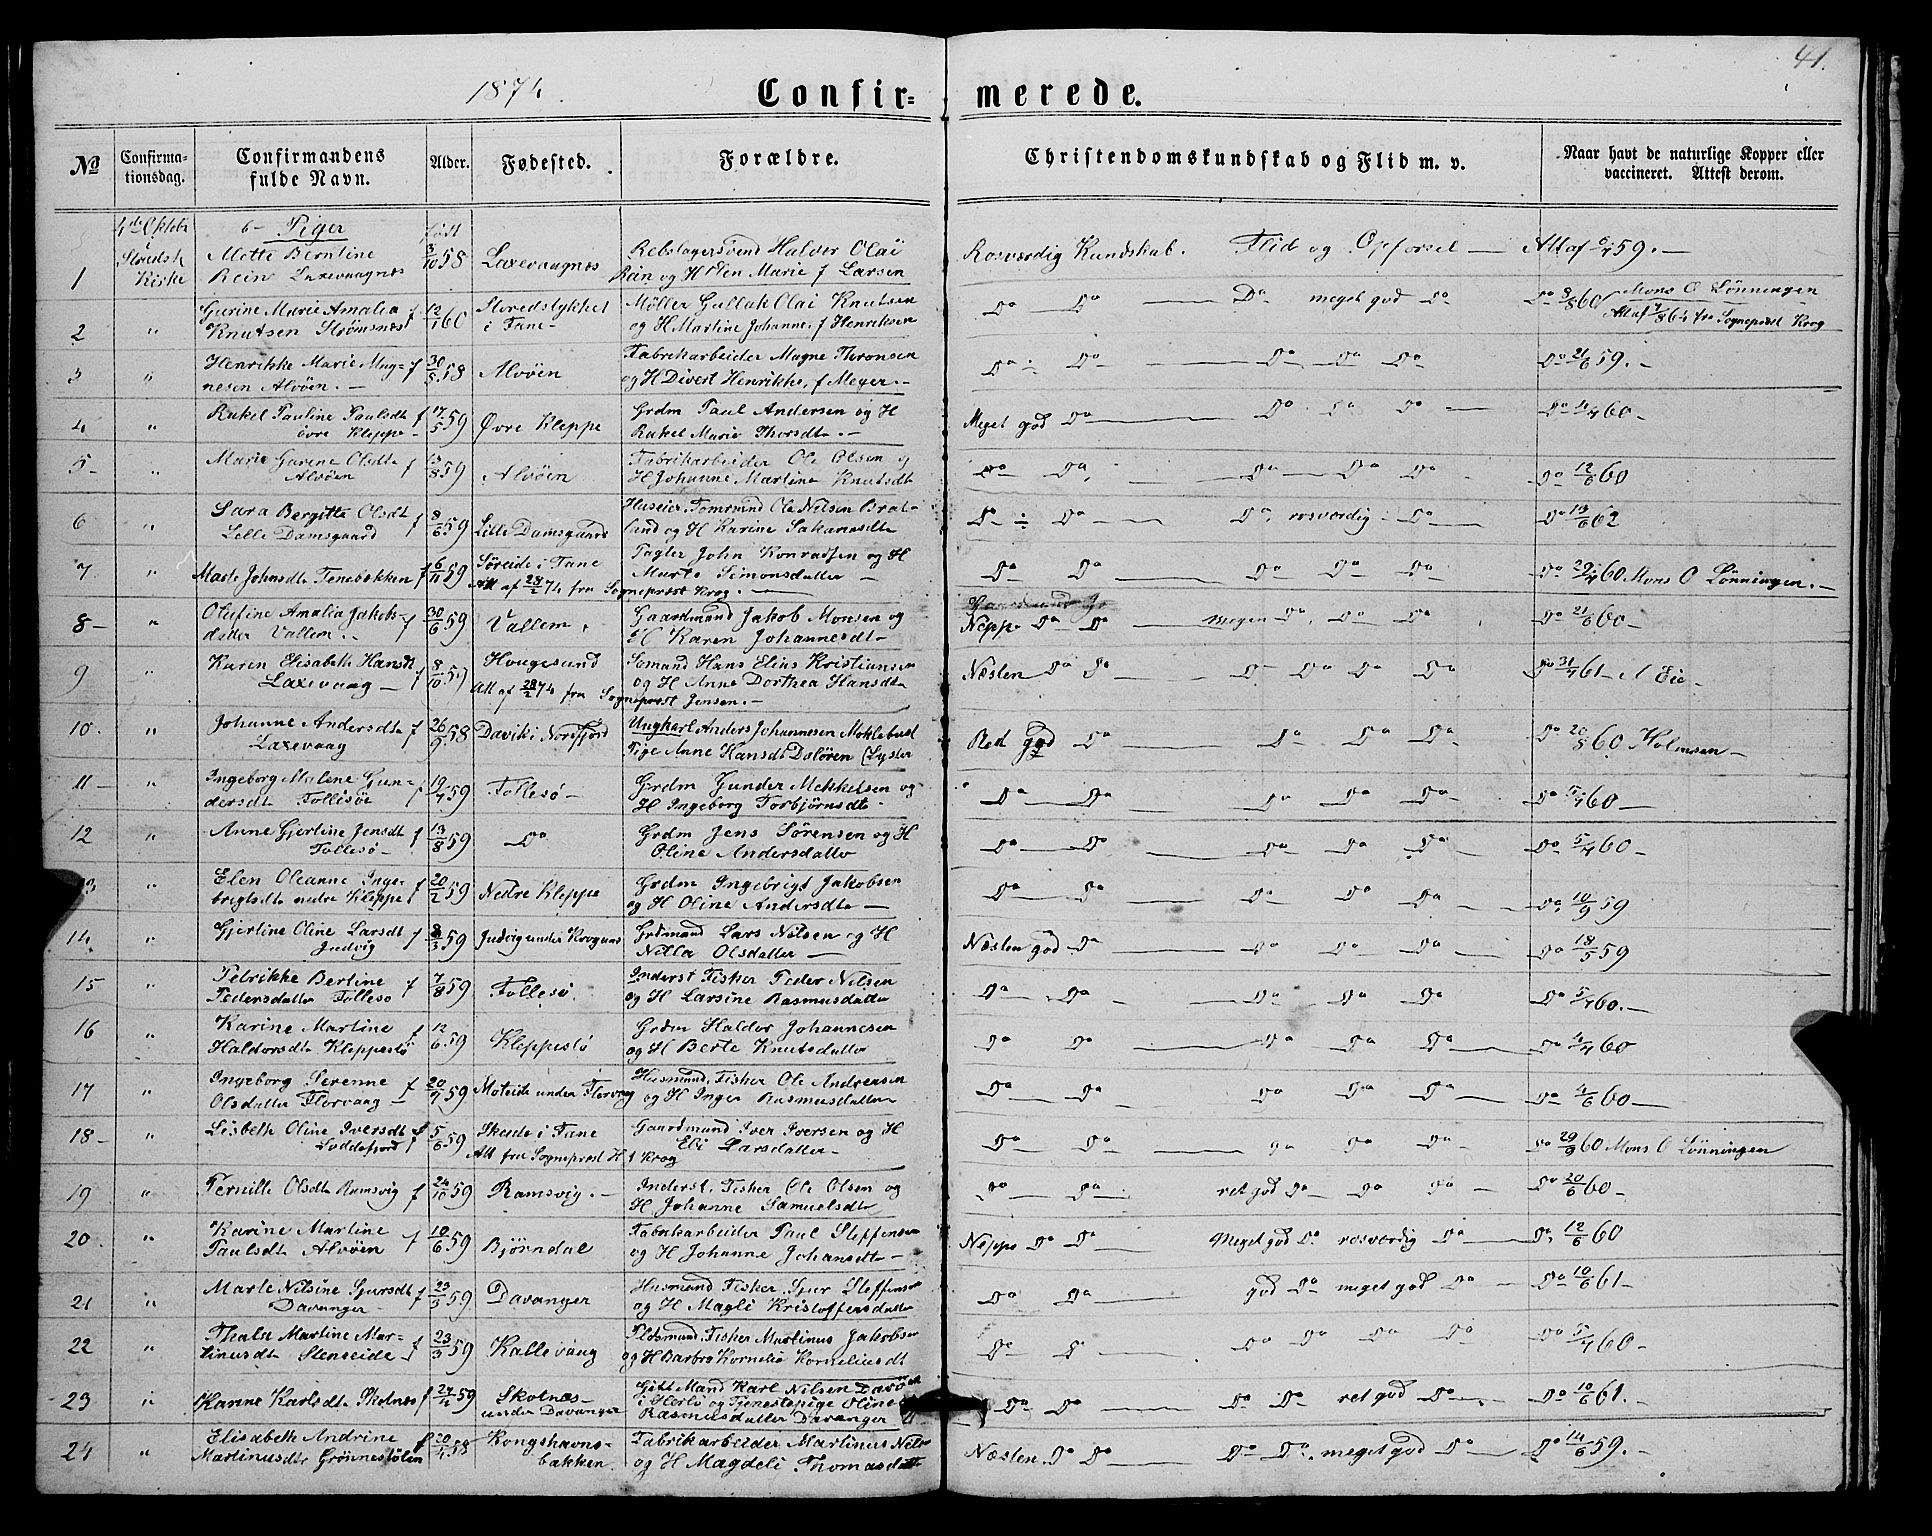 41.
1874.
Confir= merede.
No
Confirma-
tionsdag.
Confirmandens
fulde Navn.
Alder.
Fødested.
Forældre.
Christendomskundskab og Flid m. v.
Naar havt de naturlige Kopper eller
vaccineret. Attest derom.
4de Oktobr
Piger
født
1 Kirke Mette Berntine 3/10 58 Laxevaagnes Rebslagersvend Halvor Olai Rosværdig Kundskab. Flid og Opførsel — Att af 59. —
Rein Laxevaagnes Rein og H Marie f Larsen
2 " Gurine Marie Amalia f 12/1 60 Storedstykket Møller Gullak Olai Knutsen Do Do — Do meget god Do Do 3/8 60 Mons O Lønningen
Knutsen Strømsnes i Fane og H Martine Johanne f Henriksen Att af fra Sogneprest Krog
3 " Henrikke Marie Mag= f 30/5 58 Alvøen Fabrikarbeider Magne Thronsen Do Do — Do Do Do Do 21/6 59. —
nesen Alvøen. — og H Divert Henrikke, f Meyer. —
4 " Rakel Pauline Paulsdt f 17/5 59 Øvre Kleppe Grdm Paul Andersen og H Meget god Do — Do Do Do — Do 4/4 60 —
øvre Kleppe — Rakel Marie Thorsdt. —
5 — " Marie Gurine Olsdt f 59 Alvøen Fabrikarbeider Ole Olsen og Do Do — Do Do Do Do 12/6 60
Alvøen H Johanne Martine Knutsdt
6 " Sara Bergitte Olsdt f 8/6 59 Lille Damsgaard Huseier, Tømrmd Ole Nilsen Brat- Do Do — Do rosværdig Do — Do 13/6 62
Lille Damsgaard land og H Karine Sakariasdt
7. " Marte Johnsdt Tenebekken f 6/11 59 Søreide i Fane Fagter John Konradsen og H Do Do — Do Do Do — Do 29/4 60 Mons O Lønningen. —
Att af 28/2 74 fra Sogneprest Krog. — Marte Simonsdatter —
8 — " Olufine Amalia Jakobs- f 30/6 59 Vallem Gaardmand Jakob Monsen og Neppe Do Do — megen Do Do Do Do 21/6 60 —
datter Vallem. H Karen Johannesdt
9 " Karen Elisabeth Hansdt f 8/10 59 Hougesund Sømand Hans Elias Kristiansen Næsten Do Do — Do Do Do Do Do 31/4 61 A Eie —
Laxevaag — Att af 28/2 74 fra Sogneprest Jensen. — og H Anne Dorthea Hansdt
10. " Johanne Andersdt f 26/9 58 Davik i Nordfjord Ungkarl Anders Johannesen Moklebust Ret god Do — Do Do Do Do 20/8 60 Holmsen —
Laxevaag Pige Anne Hansdt Doløren (Lyster
11 — " Ingeborg Malene Gun- f 19/4 59 Follesø — Grdm Gunder Mekkelsen og Do Do — Do Do Do — Do 5/4 60 —
dersdt Follesøe H Ingeborg Torbjørnsdt —
12 " Anne Gjertine Jensdt f 13/8 59 Do — Grdm Jens Sørensen og H Do Do — Do Do Do — Do 5/4 60 —
Follesø — Oline Andersdatter
13 " Elen Oleanne Inge- 20/2 59 Nedre Kleppe Grdm Ingebrigt Jakobsen Do Do — Do Do Do Do 10/9 59
brigtsdt nedre Kleppe f og H Oline Andersdt —
14. " Gjertine Oline Larsdt f 8/3 59 Judvig under Krogenes Grdmand Lars Nilsen og H Næsten god Do — Do Do Do — Do 18/5 59
Judvig Nilla Olsdatter —
15 " Petrikke Bertine f 7/8 59 Follesø. Inderst Fisker Peder Nilsen Do Do — Do Do Do Do 5/4 60. —
Pedersdatter Follesø og H Larsine Rasmusdatter
16 " Karine Martine f 12/6 59 Kleppestø Grdm Haldor Johannesen Do Do — Do Do Do — Do 4/4 60
Haldorsdt Kleppestø og H Berte Knutsdatter
17 " Ingeborg Serenne f 20/7 59 Moteide under Florvaag Husmand. Fisker Ole Andreasen Do Do — Do Do Do — Do 4/6 60 —
Olsdatter Florvaag — og H Inger Rasmusdatter
18 — " Lisbeth Oline Iversdt f 5/6 59 Skeide i Fane Gaardmand Iver Iversen og H Do Do — Do Do Do Do 29/9 60 Mons O Lønningen
Loddefjord f Att fra Sogneprest H I Krog Eli Larsdatter —
19 " Pernille Olsdt Ramsvig f 24/10 59 Ramsvig. — Inderst. Fisker Ole Olsen og Do Do — ret god Do Do Do — Do 20/6 60 —
H Johanne Samuelsdt
20. " Karine Martine f 10/6 59 Bjørndal Fabrikarbeider Paul Steffensen Neppe Do Do — Meget god Do rosværdig Do — Do 12/6 60
Paulsdt Alvøen og H Johanne Johansdt —
21 " Marte Nilsine Sjursdt f 23/3 59 Davanger Husmand Fisker Sjur Steffensen Do Do — god Do meget god Do — Do 10/6 61 —
Davanger — og H Magli Kristoffersdatter
22 " Thala Martine Mar- f 23/3 59 Kallevaag Pldsmand, Fisker Martinus Jakobsen Do Do — Do Do Do Do — Do 5/4 60 —
tinusdt Stenseide og H Barbro Kornelia Korneliusdt
23 " Karine Karlsdt Skolnes f 24/4 59 Skolnes- Gift Mand Karl Nilsen Do Do — Do Do ret god Do — Do 10/6 61.
under Davanger og Tjenestepige Oline
Rasmusdatter Davanger
24 " Elisabeth Andrine f 20/4 58 Kongshavns- Fabrikarbeider Martinus Nils Næsten Do Do — Do Do meget god Do — Do 14/6 59. —
Martinusdtr Grønnestølen bakken og H Magdeli Thomasdatter